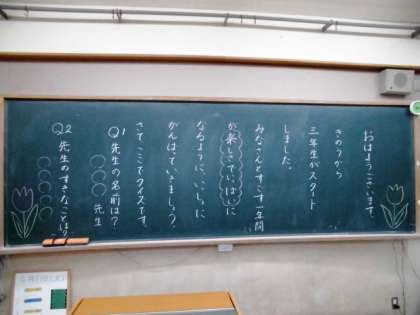 おはようございます。
きのうから
三年生がスタート
しました。
みなさんとすごす一年間
が楽しさでいっぱいに
なるように、いっしょに
がんばっていきましょう。
さて ここでクイズです。
Q1 先生の名前は?
○○○ 先生
Q2 先生のすきなことは?
○○○○○